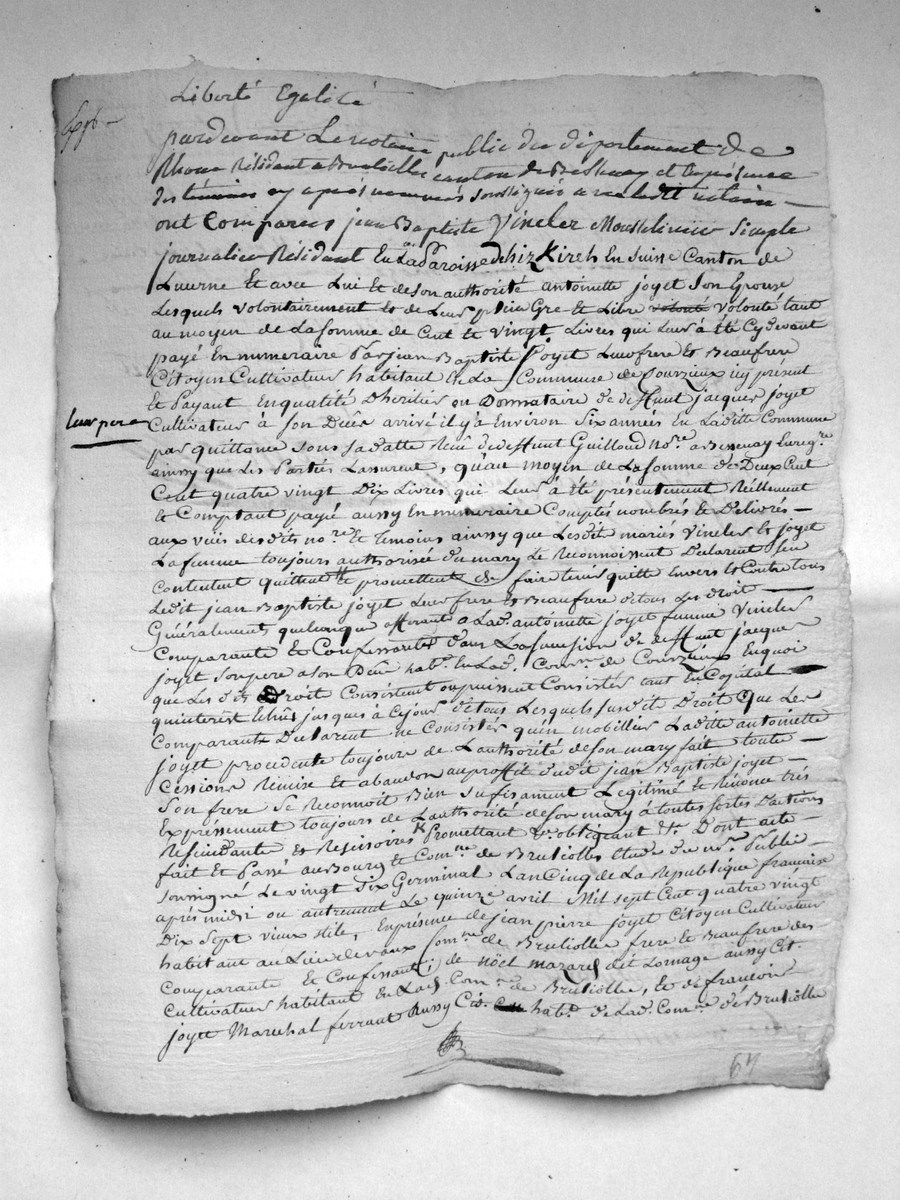 Liberté Egalité
pardevant Le notaire public du département de
Rhone Résidant a Brulliolles canton de Bessenay et En présence
des témoins cy après nommés soussignés avec ledit notaire —
ont Comparus jean Baptiste Vincler Mousselinier Simple
journalier Résidant En La Paroisse de hizkirch En Suisse Canton de
Lucerne Et avec Lui Et de son authorité antoinette joyet Son Epouse
Lesquels volontairement et de Leur plein Gré et Libre volonté tant
au moyen de La somme de Cent Et vingt Livres qui Leur à été Cy devant
payé En numeraire Par jean Baptiste joyet Leur frere Et Beaufrere
Citoyen Cultivateur habitant En La Commune de Courzieux icy présent
Et Payant En qualité D'heritier ou Donnataire de deffunt jacques joyet
leur pere
Cultivateur à Son Décès arrivé il y à Environ Six années En Ladite Commune
par quittance sous sa datte Reçu de deffunt Guilloud no.re a Bessenay Enreg.re
ainssy que Les Parties L'assurent, qu'au moyen de La somme de Deux Cent
Cent quatre vingt Dix Livres qui Leur à été présentement Réellement
Et Comptant payé aussy En numeraire Comptés nombrés et Delivrés —
aux vües desdits no.re Et temoins ainssy que Lesdit mariés Vincler Et joyet
La femme toujours authorisée du mary Le Reconnoissent Declarent S'en
Contentent quittent et promettent de faire tenir quitte Envers Et Contre tous
Ledit jean Baptiste joyet Leur frere Et Beaufrere de tous Les droit —
Généralement quelconque afferant a Lad. antoinette joyet femme Vincler
Comparante Et Confessante dans La sucession de deffunt jacques
joyet Son pere a son Décès hab.t En Lad. Comm.ne de Courzieux En quoi
que Les dits Droit Consistent ou puissent Consister tant En Capital —
qu'interest Echus jusques à Ce jour de tous Lesquels susdit Droit Que Les
Comparants Declarent ne Consister qu'en mobillier Ladite antoinette
joyet procedente toujours de L'authorité de son mary fait toute —
Cessions Remise Et abandon au proffit dudit jean Baptiste joyet —
Son frere Se Reconnoit Bien Sufisament Legitimé Et Renonce trés
Expréssement toujours de L'authorité de son mary à toutes sortes D'actions
Rescindante Et Rescisoires Promettant &.a obligeant &.a Dont acte —
fait Et Passé au Bourg & Com.ne de Brulliolles Etude du no.re Public
soussigné Le vingt Six Germinal L'an Cinq de La Republique française
après midi ou autrement Le quinze avril Mil sept Cent quatre vingt
Dix Sept vieux stile, En présence de jean pierre joyet Citoyen Cultivateur
habitant au Lieu de vaux Com.ne de Brulliolle frere Et Beaufrere des
Comparante Et Confessant; de Nöel Mazard dit Lornage aussy Cit.
Cultivateur habitant En Lad. Com.ne de Brulliolle, Et de françois
joyet Marechal ferrant Aussy Cit. hab.t de Lad. Com.ne de Brulliolle
67